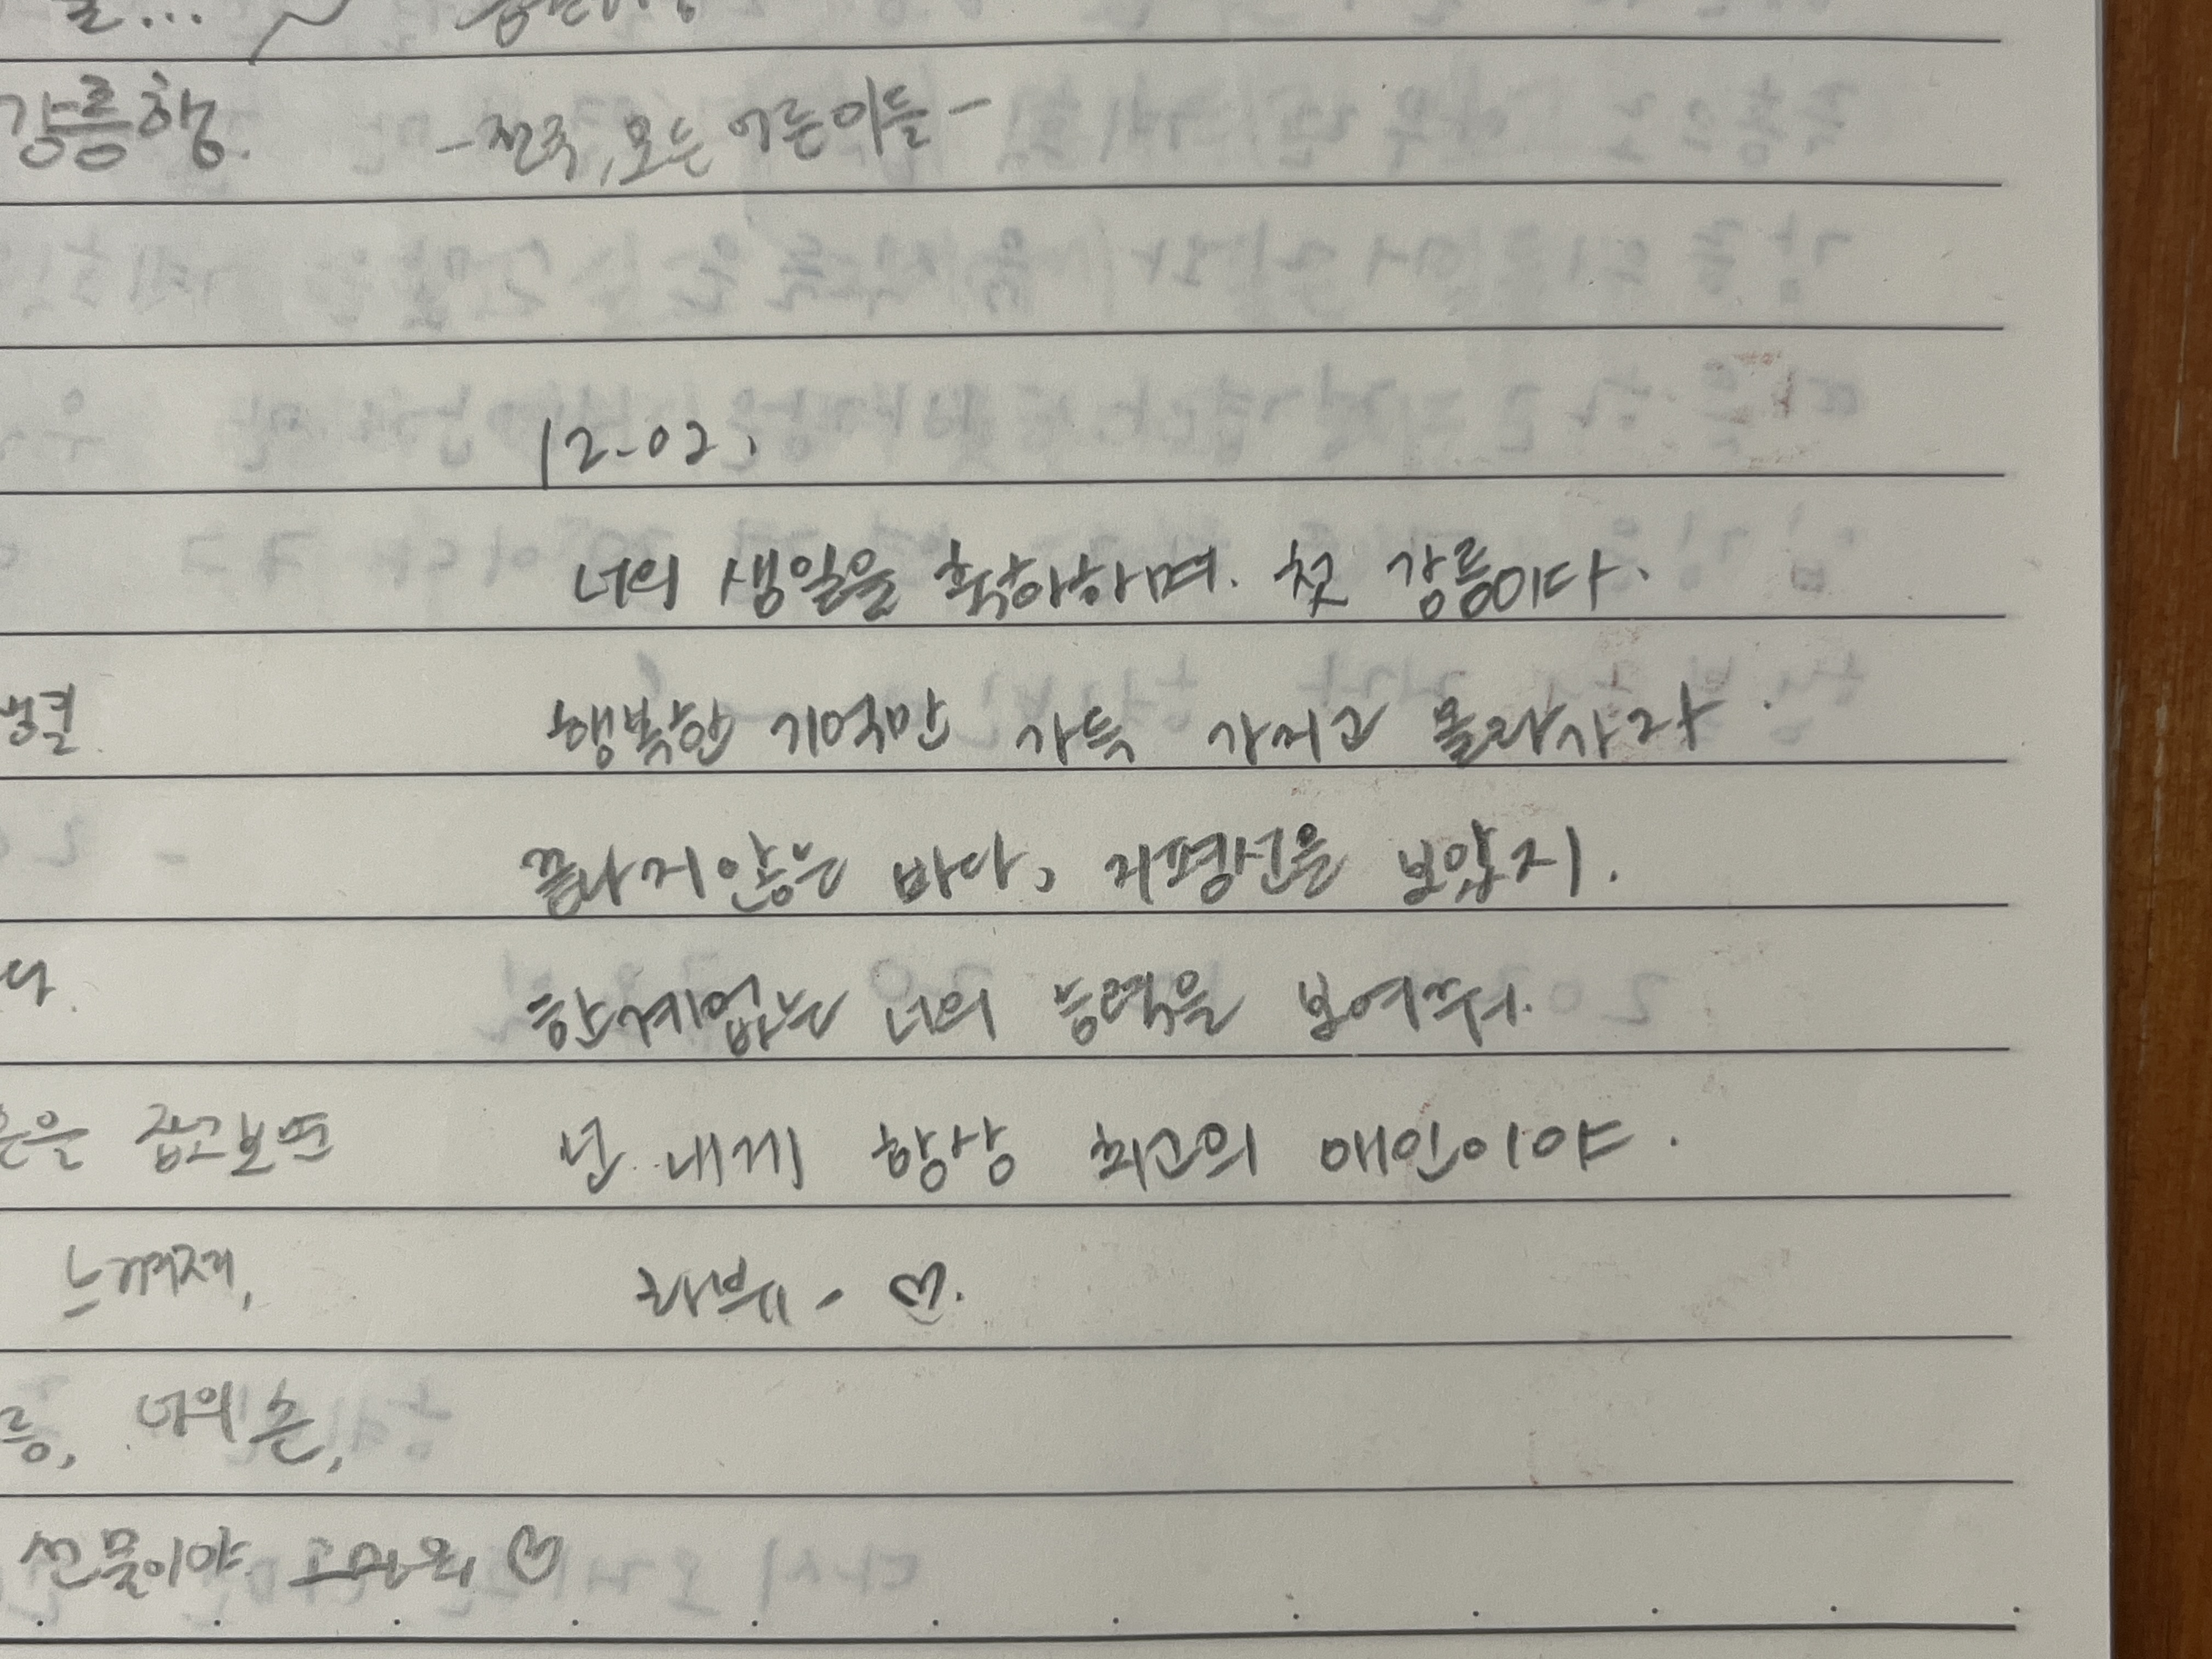 강릉행. -전국, 모든 어른이들-
12.02,
너의 생일을 축하하며. 첫 강릉이다.
행복한 기억만 가득 가지고 올라가라.
끝나지않은 바다, 지평선을 보았지.
한계없는 너의 능력을 보여줘.
넌 내게 항상 최고의 애인이야.
라뷰 - ♡.
잡고보면
느껴져,
너의 손,
선물이야. 고마워 ♡